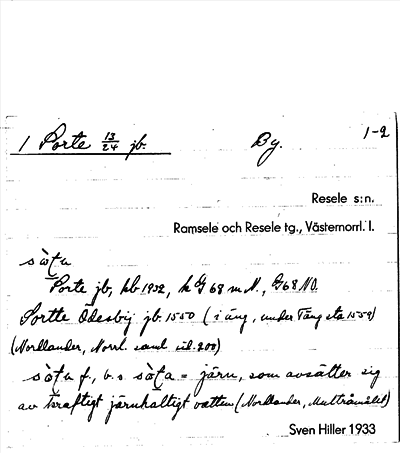 1 Sorte 13/24 jb. By. 1-2
Resele s:n.
Ramsele och Resele tg., Västernorrl. l.
Sorte jb, kb 1932, k G 68 m N., G68 NO.
Sortte Ödesbij jb. 1550 (i äng, under Tängsta 1559)
(Nordlander, Norrl. saml. sid. 200)
f, b.s = järn, som avsätter sig
av kraftigt järnhaltigt vatten (Nordlander, Multråmålet)
Sven Hiller 1933